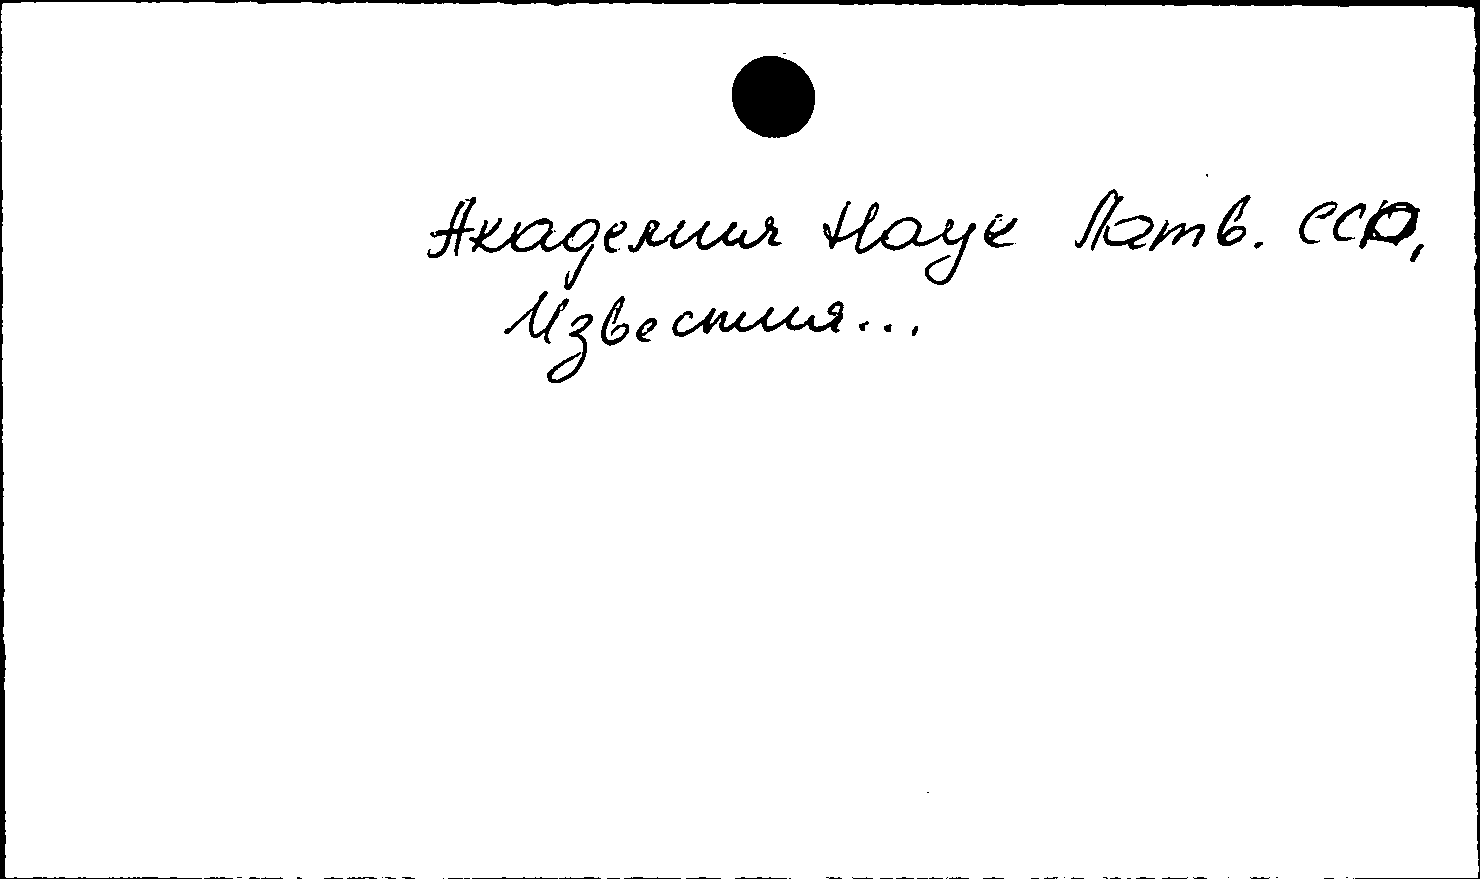 Академия Наук Латв. ССР,
Известия...